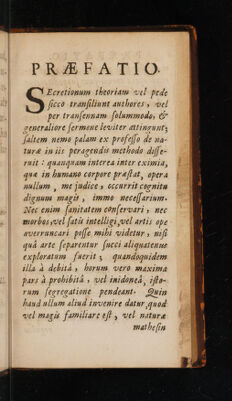 PRÆFATIO.
SEcretionum theoriam vel pede
sicco transiliunt authores, vel
per transennam solummodo, &
generaliore sermone leviter attingunt;
saltem nemo palam ex professo de na-
turæ in iis peragendis methodo disse-
ruit: quanquam interea inter eximia,
quæ in humano corpore præstat, opera
nullum, me judice, occurrit cognitu
dignum magis, immo necessarium.
Nec enim sanitatem conservari, nec
morbos, vel satis intelligi, vel artis ope
averruncari posse mihi videtur, nisi
quâ arte separentur succi aliquatenus
exploratum fuerit; quandoquidem
illa à debitâ, horum vero maxima
pars à prohibitâ, vel inidoneâ, isto-
rum segregatione pendeant. Quin
haud ullum aliud invenire datur, quod
vel magis familiare est, vel naturæ
mathesin